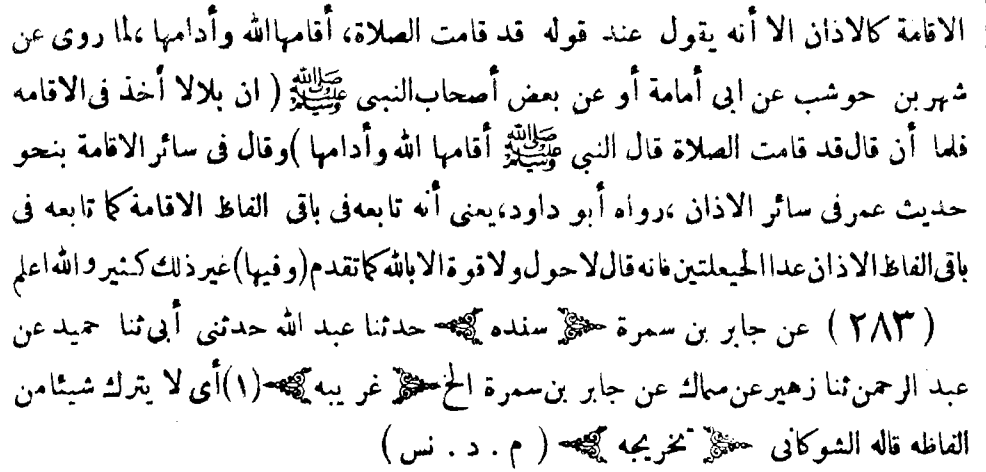 الاقامة كالاذان الا أنه يقول عند قوله قد قامت الصلاة، أقامها الله وأدامها ،لما روى عن
شهر بن حوشب عن ابى أمامة أو عن بعض أصحاب النبى ﷺ ( ان بلالا أخذ فى الاقامه
فلما أن قال قد قامت الصلاة قال النبي ﷺ أقامها الله وأدامها )وقال فى سائر الاقامة بنحو
حديث عمر فى سائر الاذان ،رواه أبو داود،يعنى أنه تابعه فى باقى الفاظ الاقامة كما تابعه فى
باقى الفاظ الاذان عدا الحيعلتين فانه قال لا حول ولا قوة الا بالله كما تقدم (وفيها)غير ذلك كثير والله اعلم
( ٢٨٣ ) عن جابر بن سمرة ﴿ سنده ﴾ حدثنا عبد الله حدثنى أبى ثنا حميد عن
عبد الرحمن ثنا زهير عن سماك عن جابر بن سمرة الخ ﴿ غريبه ﴾ (١)أى لا يترك شيئا من
الفاظه قاله الشوكانى ﴿ تخريجه ﴾ ( م . د . نس )